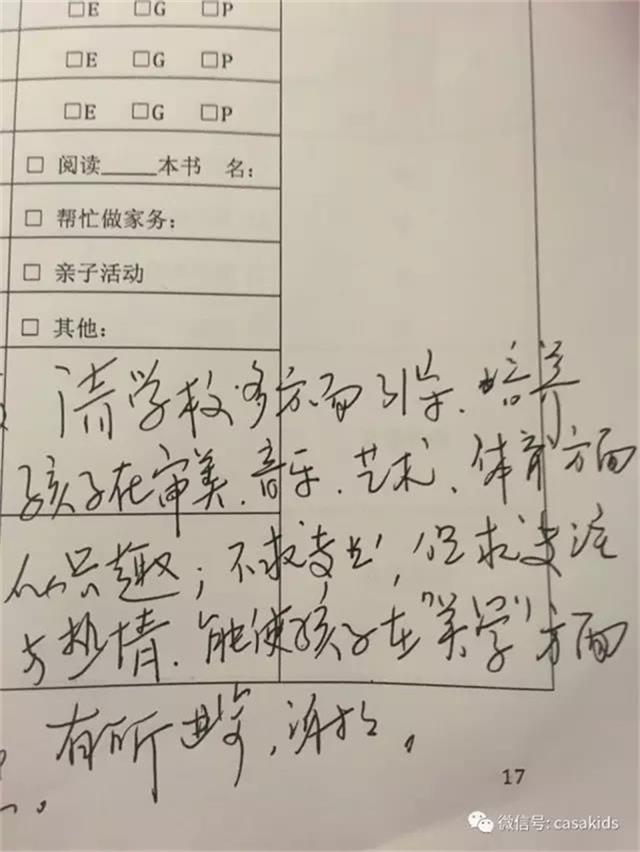 □E □G □P
□E □G □P
□E □G □P
□ 阅读_____本书 名：
□ 帮忙做家务：
□ 亲子活动
□ 其他：
请学校多方面引导、培养
孩子在审美、音乐、艺术、体育方面
的兴趣；不求专业，但求专注
与热情，能使孩子在“美学”方面
有所 ，谢谢。
17
微信号: casakids